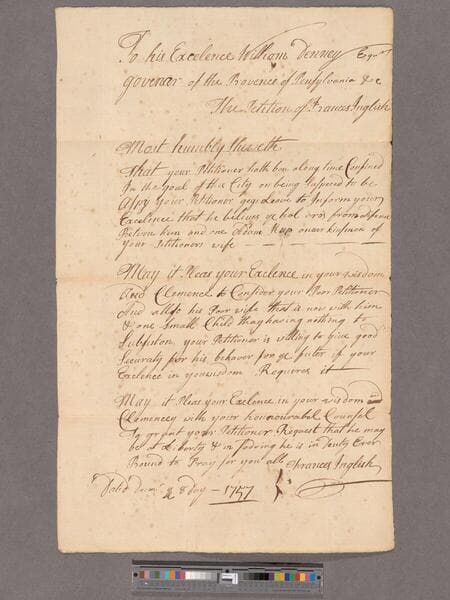 To his Excelence William Denney Esqr
govenor of the Provence of Pensylvania &c
The Petition of Frances Inglish
Most humbly Sheweth
That your Petitioner hath ben along time Confined
In the Goal of this City on being Suspected to be
a Spy your Petitioner Begs Leave to Inform your
Excelence that he believes it hol
Between him and one Adam
your Petitioners wife
May it Pleas your Exclence in your wisdom
And Clemence to Consider your Poor Petitioner
And allso his Poor wife that is now with him
& one Small Child thay having nothing to
Subsist on your Petitioner is willing to Give good
Securaty for his behavor for ye futer if your
Exclence in your wisdom Requires it
May it Pleas your Exelence in your wisdom and
Clemencey with your honnourabel Counsel
To grant your Petitioner Request that he may
be at Liberty & in so doing he is in Duty Ever
Bound to Pray for you all Frances Inglish
8 day - 1757